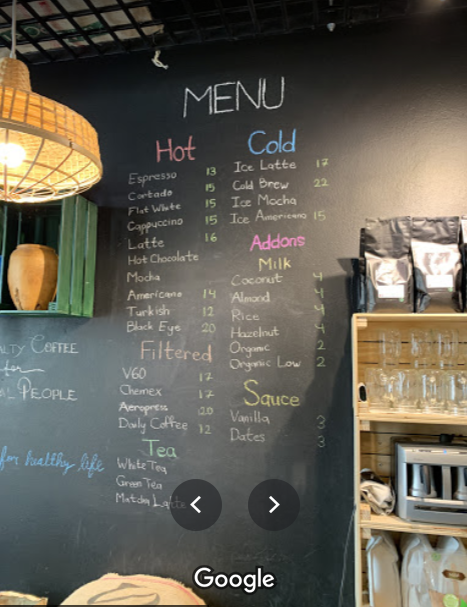 MENU
Hot
Espresso 13
Cortado 15
Flat White 15
Cappuccino 15
Latte 16
Hot Chocolate
Mocha
Americano 14
Turkish 12
Black Eye 20
Filtered
V60 17
Chemex 17
Aeropress 20
Daily Coffee 12
Tea
White Tea
Green Tea
Matcha Latte
Cold
Ice Latte 17
Cold Brew 22
Ice Mocha
Ice Americano 15
Addons
Milk
Coconut 4
Almond 4
Rice 4
Hazelnut 4
Organic 2
Organic Low 2
Sauce
Vanilla 3
Dates 3
ALTY COFFEE
for
AL PEOPLE
for healthy life
Google